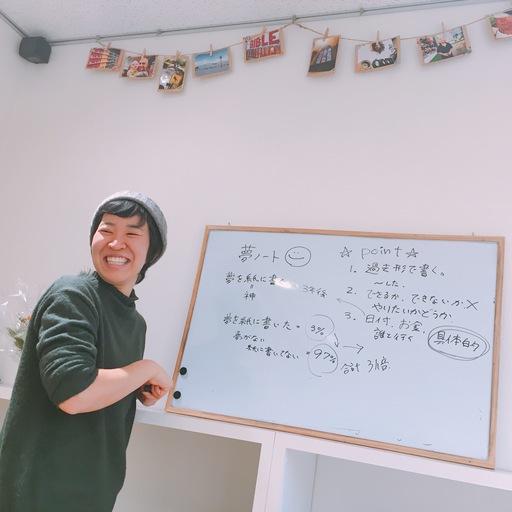 夢ノート
夢を紙に書
神
3年後
夢を紙に書いた = 3%
書かない
紙に書いてない = 97%
合計 3倍
☆ point ☆
1. 過去形で書く。
〜した。
2. できるか、できないか ×
やりたいかどうか
3. 日付、お金、
誰と行く
具体的
BIBLE